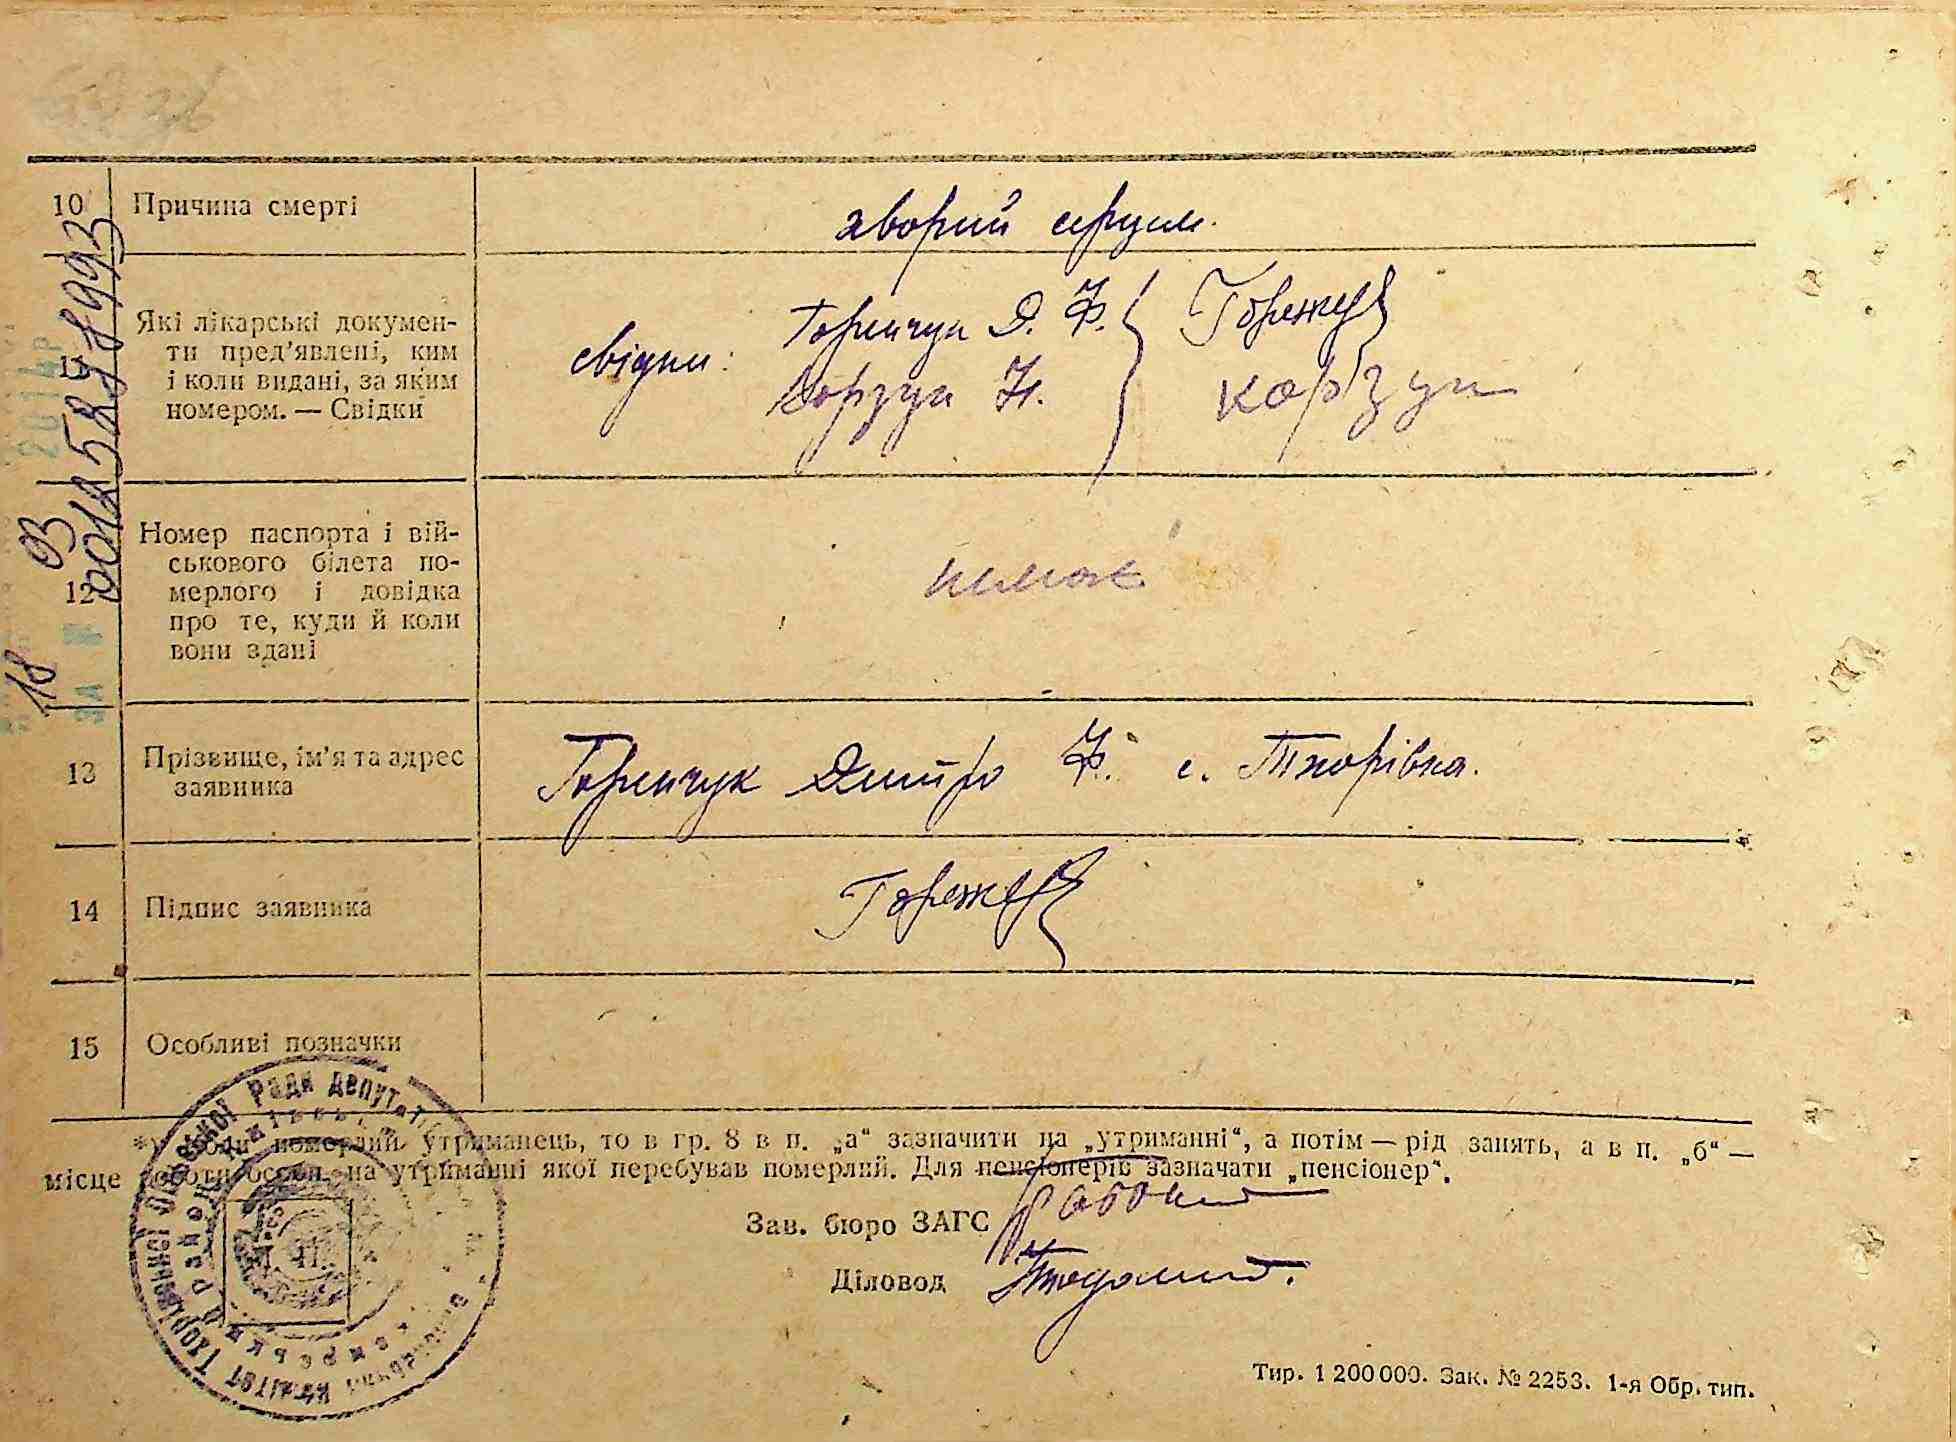 10
Причина смерті
хворий серцем.
11
Які лікарські докумен-
ти пред'явлені, ким
і коли видані, за яким
номером. — Свідки
свідки:
Горенчук Д. Ф.
Корзун Н.
Корзун
12
Номер паспорта і вій-
ськового білета по-
мерлого і довідка
про те, куди й коли
вони здані
немає
13
Прізвище, ім'я та адрес
заявника
Горенчук Дмитро Ф. с. Тхорівка.
14
Підпис заявника
15
Особливі позначки
померлий утриманець, то в гр. 8 в п. „а“ зазначити на „утриманні“, а потім — рід занять, а в п. „б“ —
місце роботи особи, на утриманні якої перебував померлий. Для пенсіонерів зазначати „пенсіонер“.
Зав. бюро ЗАГС
Діловод
Тир. 1 200 000. Зак. № 2253. 1-я Обр. тип.